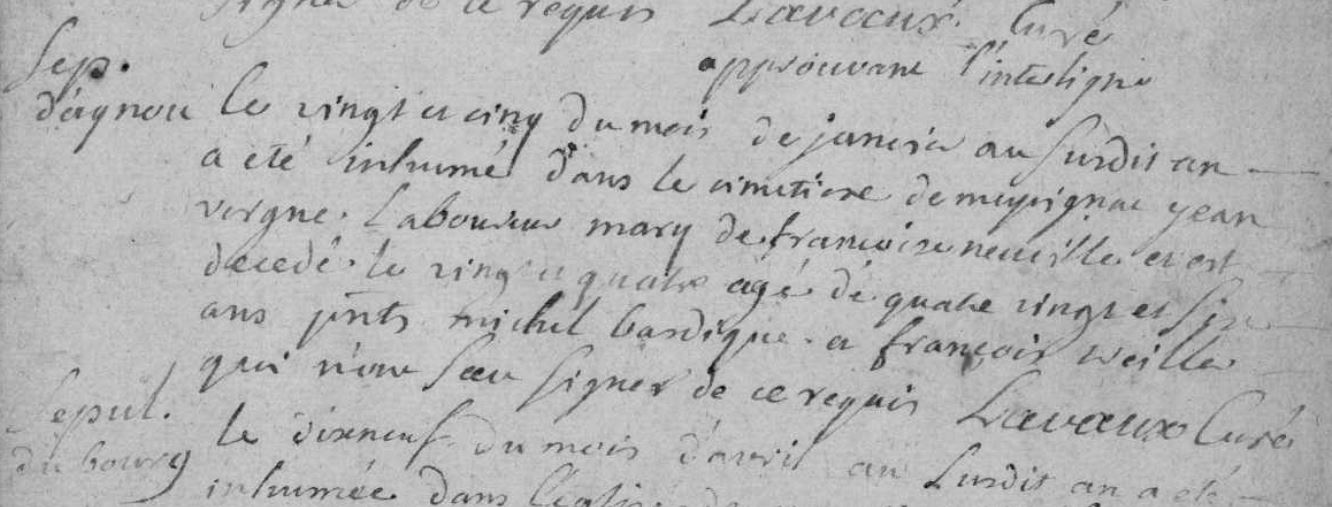 signer de ce requis Lavaux Curé
approuvant l'interligne
Sep.
d'agnou le vingt et cinq du mois de janvier au susdit an
a été inhumé dans le cimitiere de meyrignac jean
vergne laboureur mary de françoise neuville et est
decedé le vingt et quatre agé de quatre vingt et six
ans pnts michel bardique et françois
qui n'ont sceu signer de ce requis Lavaux Curé
Sepul.
du bourg
le dixneuf du mois d'avril au susdit an a eté
inhumée dans l'eglise de